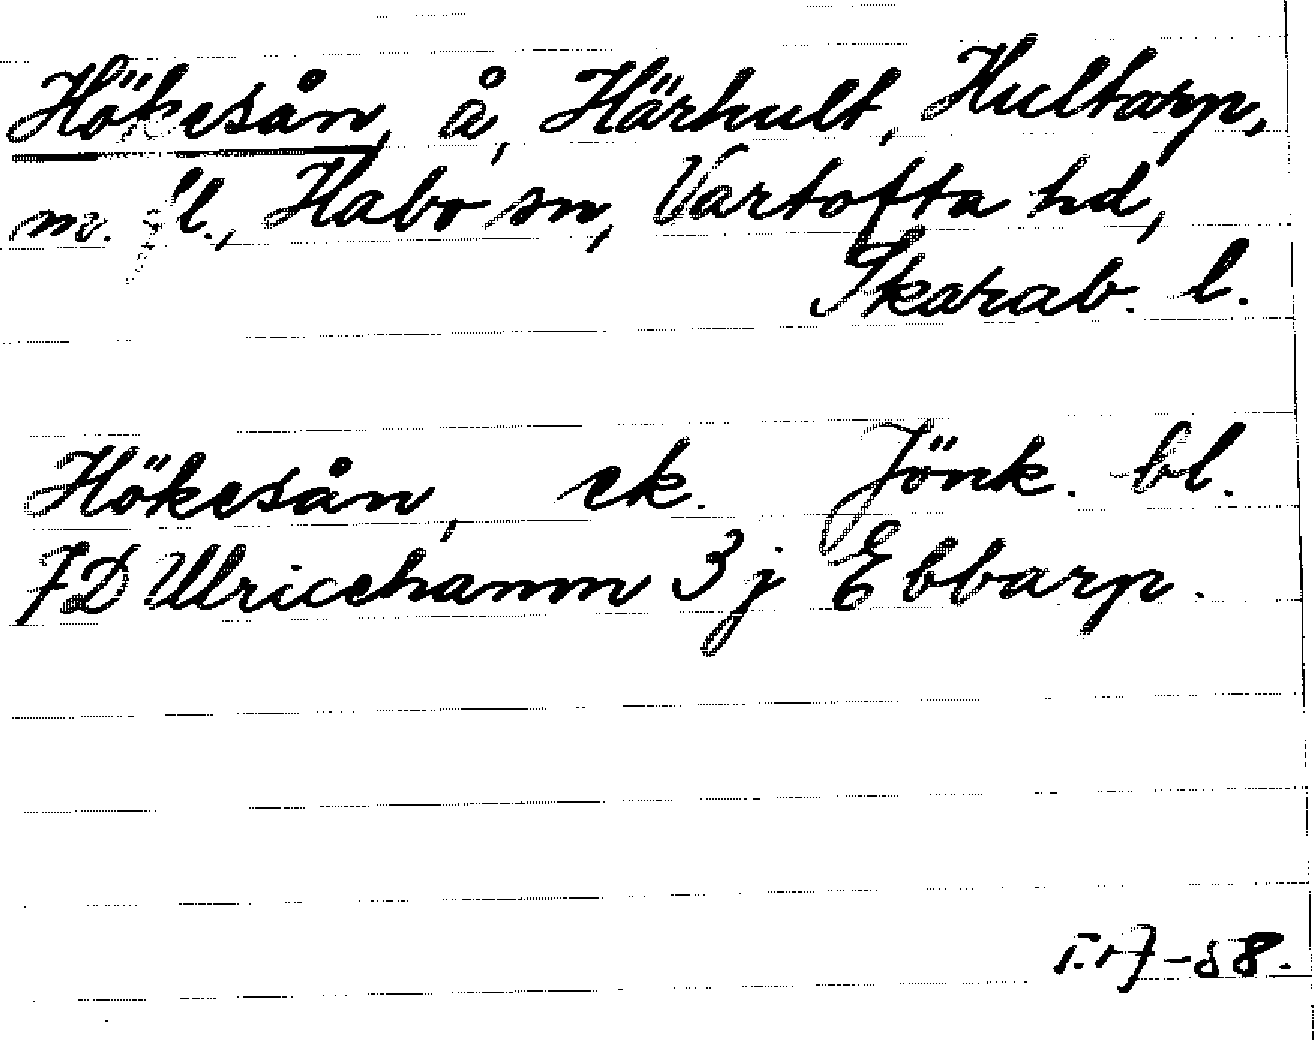 Hökesån, å, Härkult, Hultarp,
m. fl., Habo sn, Vartofta hd,
Skarab. l.
Hökesån, ek. Jönk. bl.
7D Ulricehamn 3j Ebbarp.